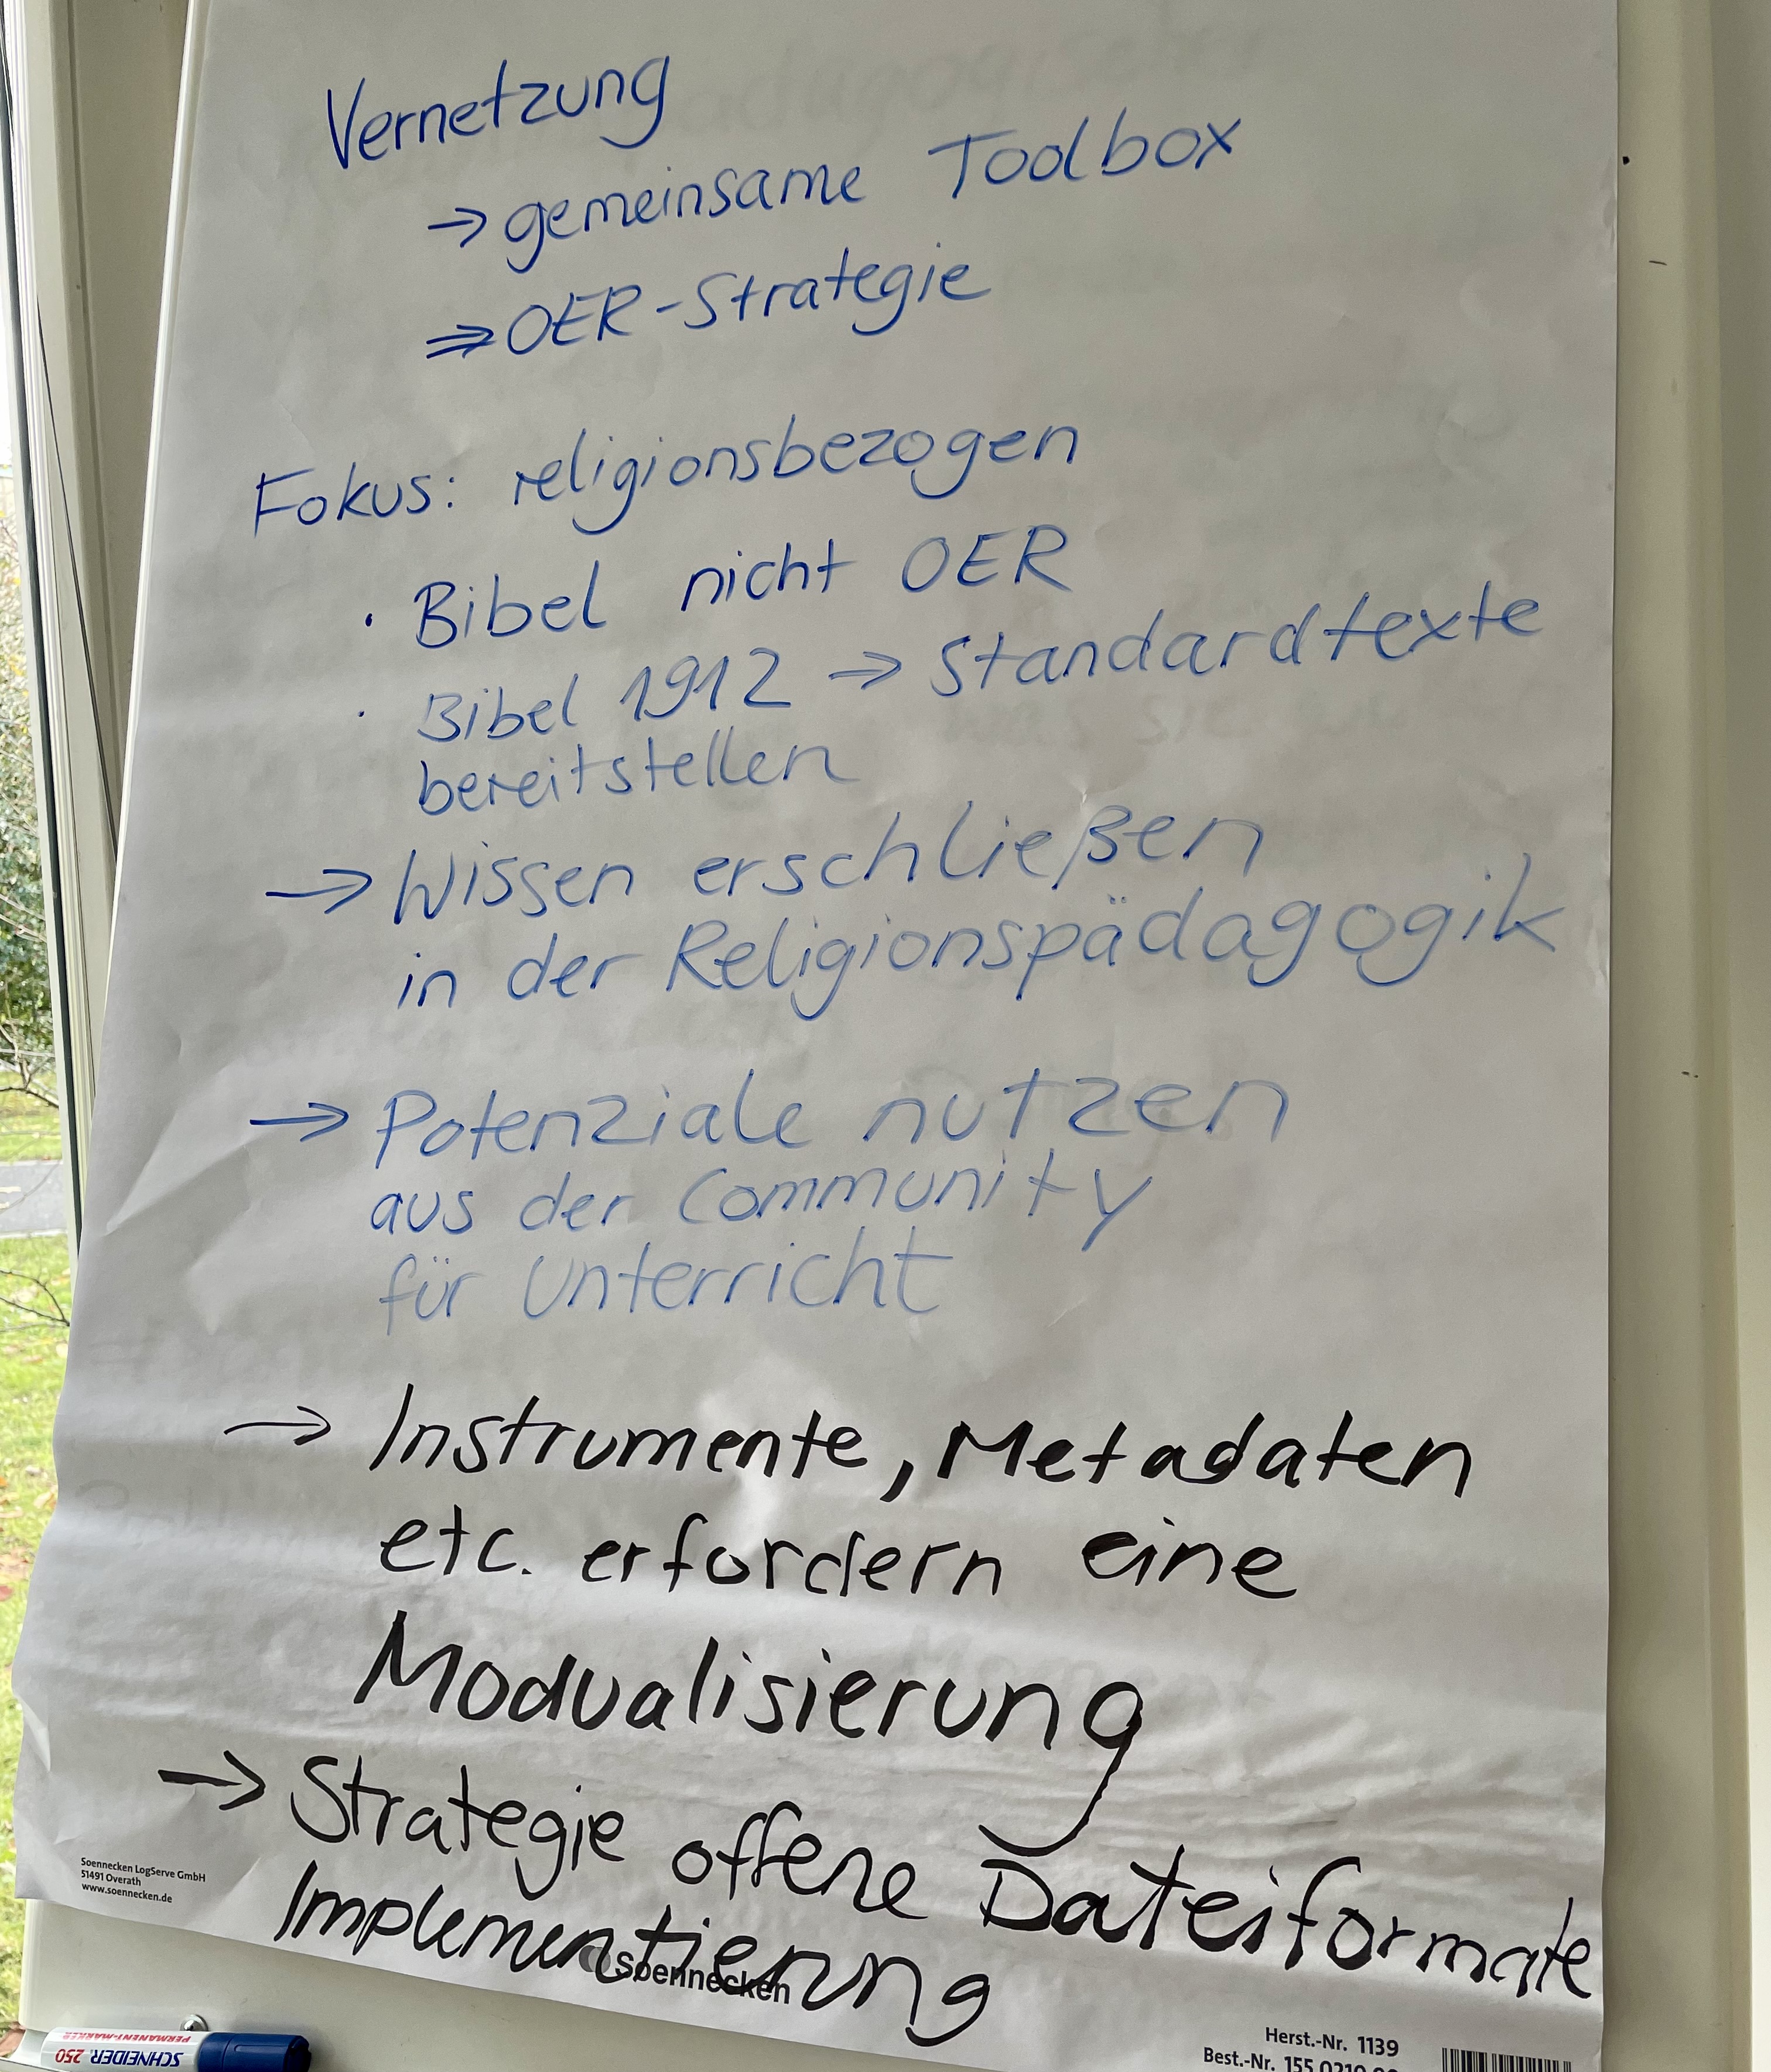 Vernetzung
→ gemeinsame Toolbox
⇒ OER-Strategie
Fokus: religionsbezogen
· Bibel nicht OER
· Bibel 1912 → Standardtexte
bereitstellen
→ Wissen erschließen
in der Religionspädagogik
→ Potenziale nutzen
aus der Community
für Unterricht
→ Instrumente, Metadaten
etc. erfordern eine
Modualisierung
→ Strategie offene Dateiformate
Implementierung
Soennecken LogServe GmbH
51491 Overath
www.soennecken.de
Soennecken
Herst.-Nr. 1139
Best.-Nr. 155 0210
SCHNEIDER 250
PERMANENT-MARKER